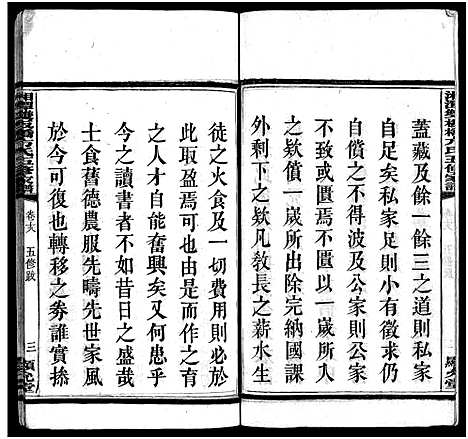 蓋藏及餘一餘三之道則私家
足足矣私家足則小有徵求仍
自償之不得波及公家則公家
不致或匱而不匱以一歲所入
儉一歲所出除完納國
外則剩之欵凡教長之薪水生
徒之火食及一切費用則必於
此取盈焉可也由是而作之育
之人才自能奮興矣又何患乎
今之讀書者不如昔日之盛哉
士食舊德農服先疇先世家風
於今可復也轉移之券誰實操
卷六 五修跋
三